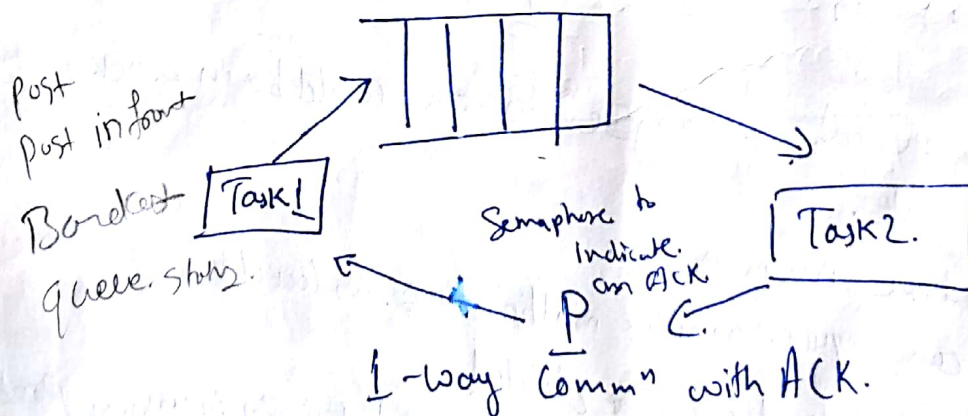 post
post in front
Bordcast
queue. status.
Task 1
Semaphore to
Indicate.
an ACK
Task 2.
P
1-way Commⁿ with ACK.